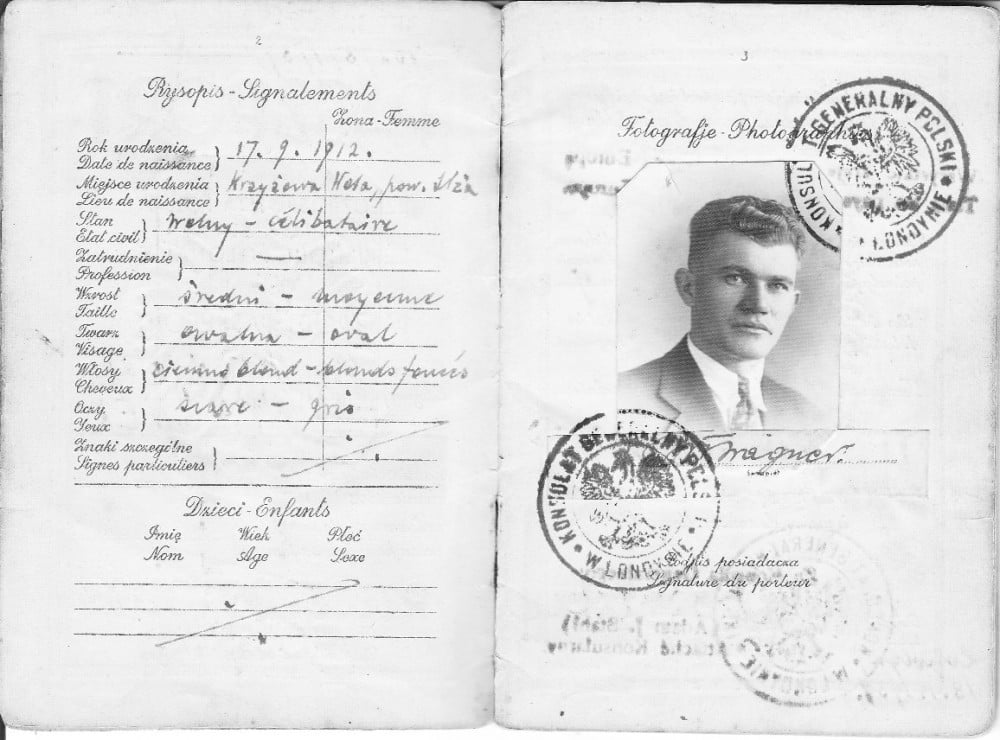 2
Rysopis - Signalements
Żona - Femme
Rok urodzenia
Date de naissance
17. 9. 1912.
Miejsce urodzenia
Lieu de naissance
Krzyżowa Wola, pow. Iłża
Stan
Etat civil
wolny - célibataire
Zatrudnienie
Profession
—
Wzrost
Taille
średni - moyenne
Twarz
Visage
owalna - oval
Włosy
Cheveux
ciemno blond - blonds foncés
Oczy
Yeux
szare - gris
Znaki szczególne
Signes particuliers
Dzieci - Enfants
Imię Wiek Płeć
Nom Age Sexe
3
Fotografje - Photographies
KONSULAT GENERALNY POLSKI
W LONDYNIE
Wagner
KONSULAT GENERALNY POLSKI
W LONDYNIE
Podpis posiadacza
Signature du porteur
Adam J. Stahl)
Attaché Konsularny
W LONDYNIE